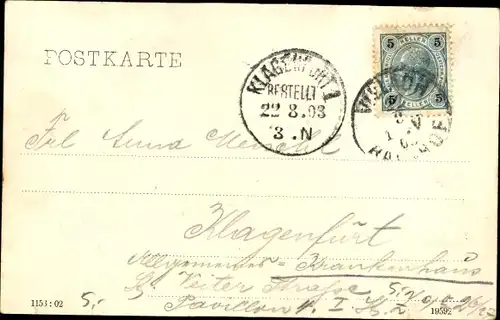 POSTKARTE
5 5
HELLER
5 5
KLAGENFURT 1
BESTELLT
22 8.03
3.N
Frl Anna
Klagenfurt
Allgemeines Krankenhaus
St Veiter Straße
Pavillon I
1153:02
5,-
19592